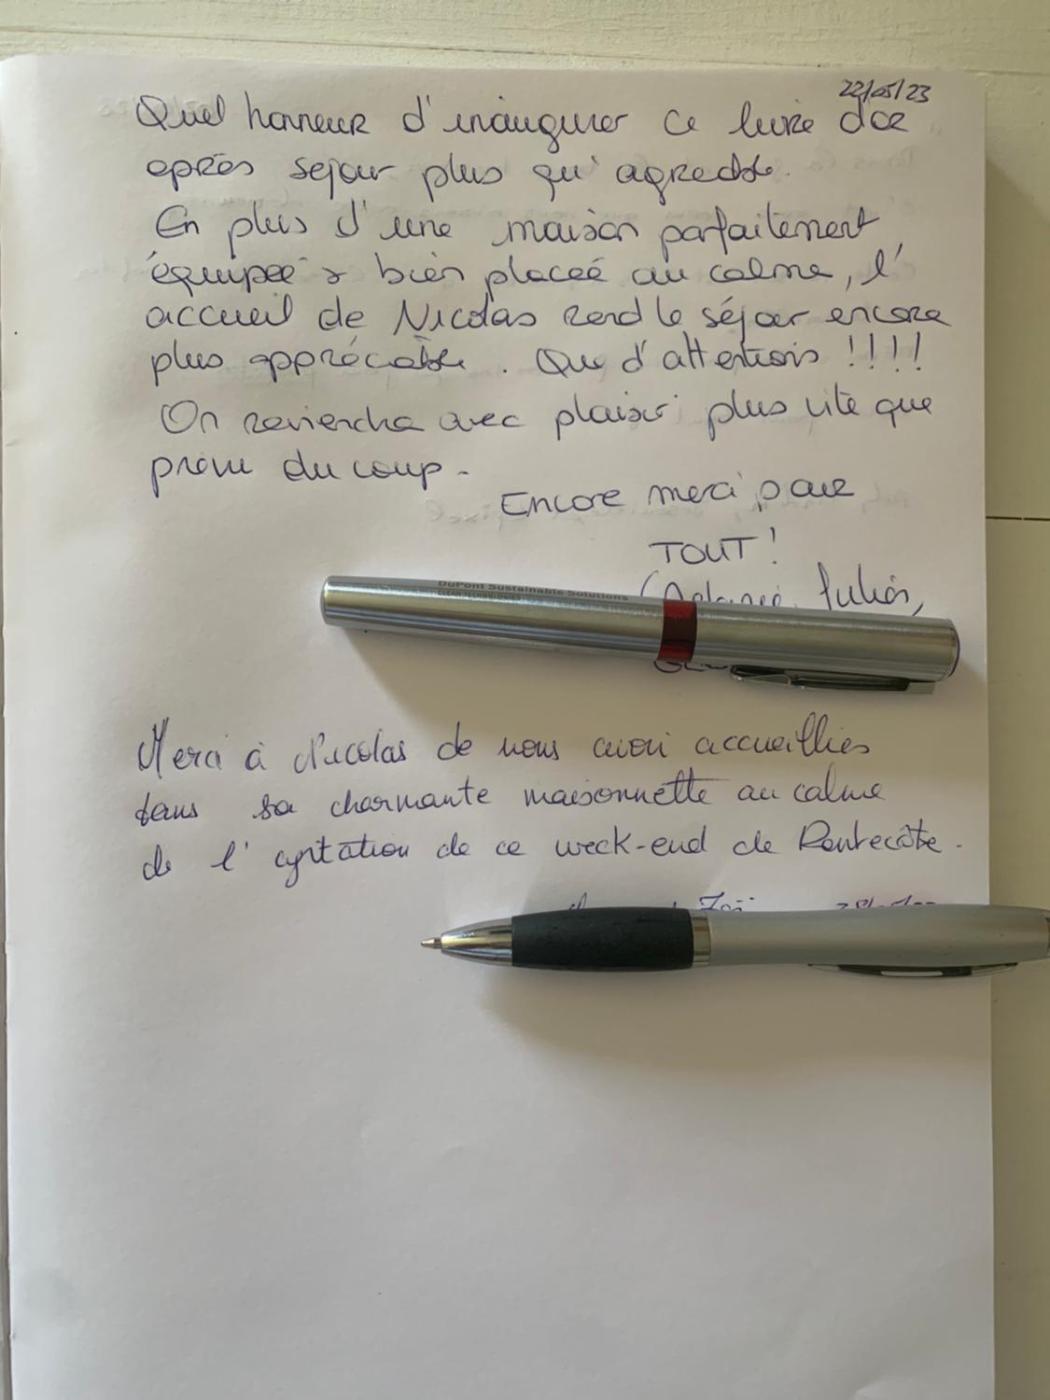 22/05/23
Quel honneur d'inaugurer ce livre d'or
après sejour plus qu'agreable.
En plus d'une maison parfaitement
équipée & bien placée au calme, l'
accueil de Nicolas rend le séjour encore
plus appréciable. Que d'attentions !!!!
On reviendra avec plaisir plus vite que
prévu du coup.
Encore merci pour
TOUT !
Julien,
DuPont Sustainable Solutions
Merci à Nicolas de nous avoir accueillies
dans sa charmante maisonnette au calme
de l'agitation de ce week-end de Pentecôte.